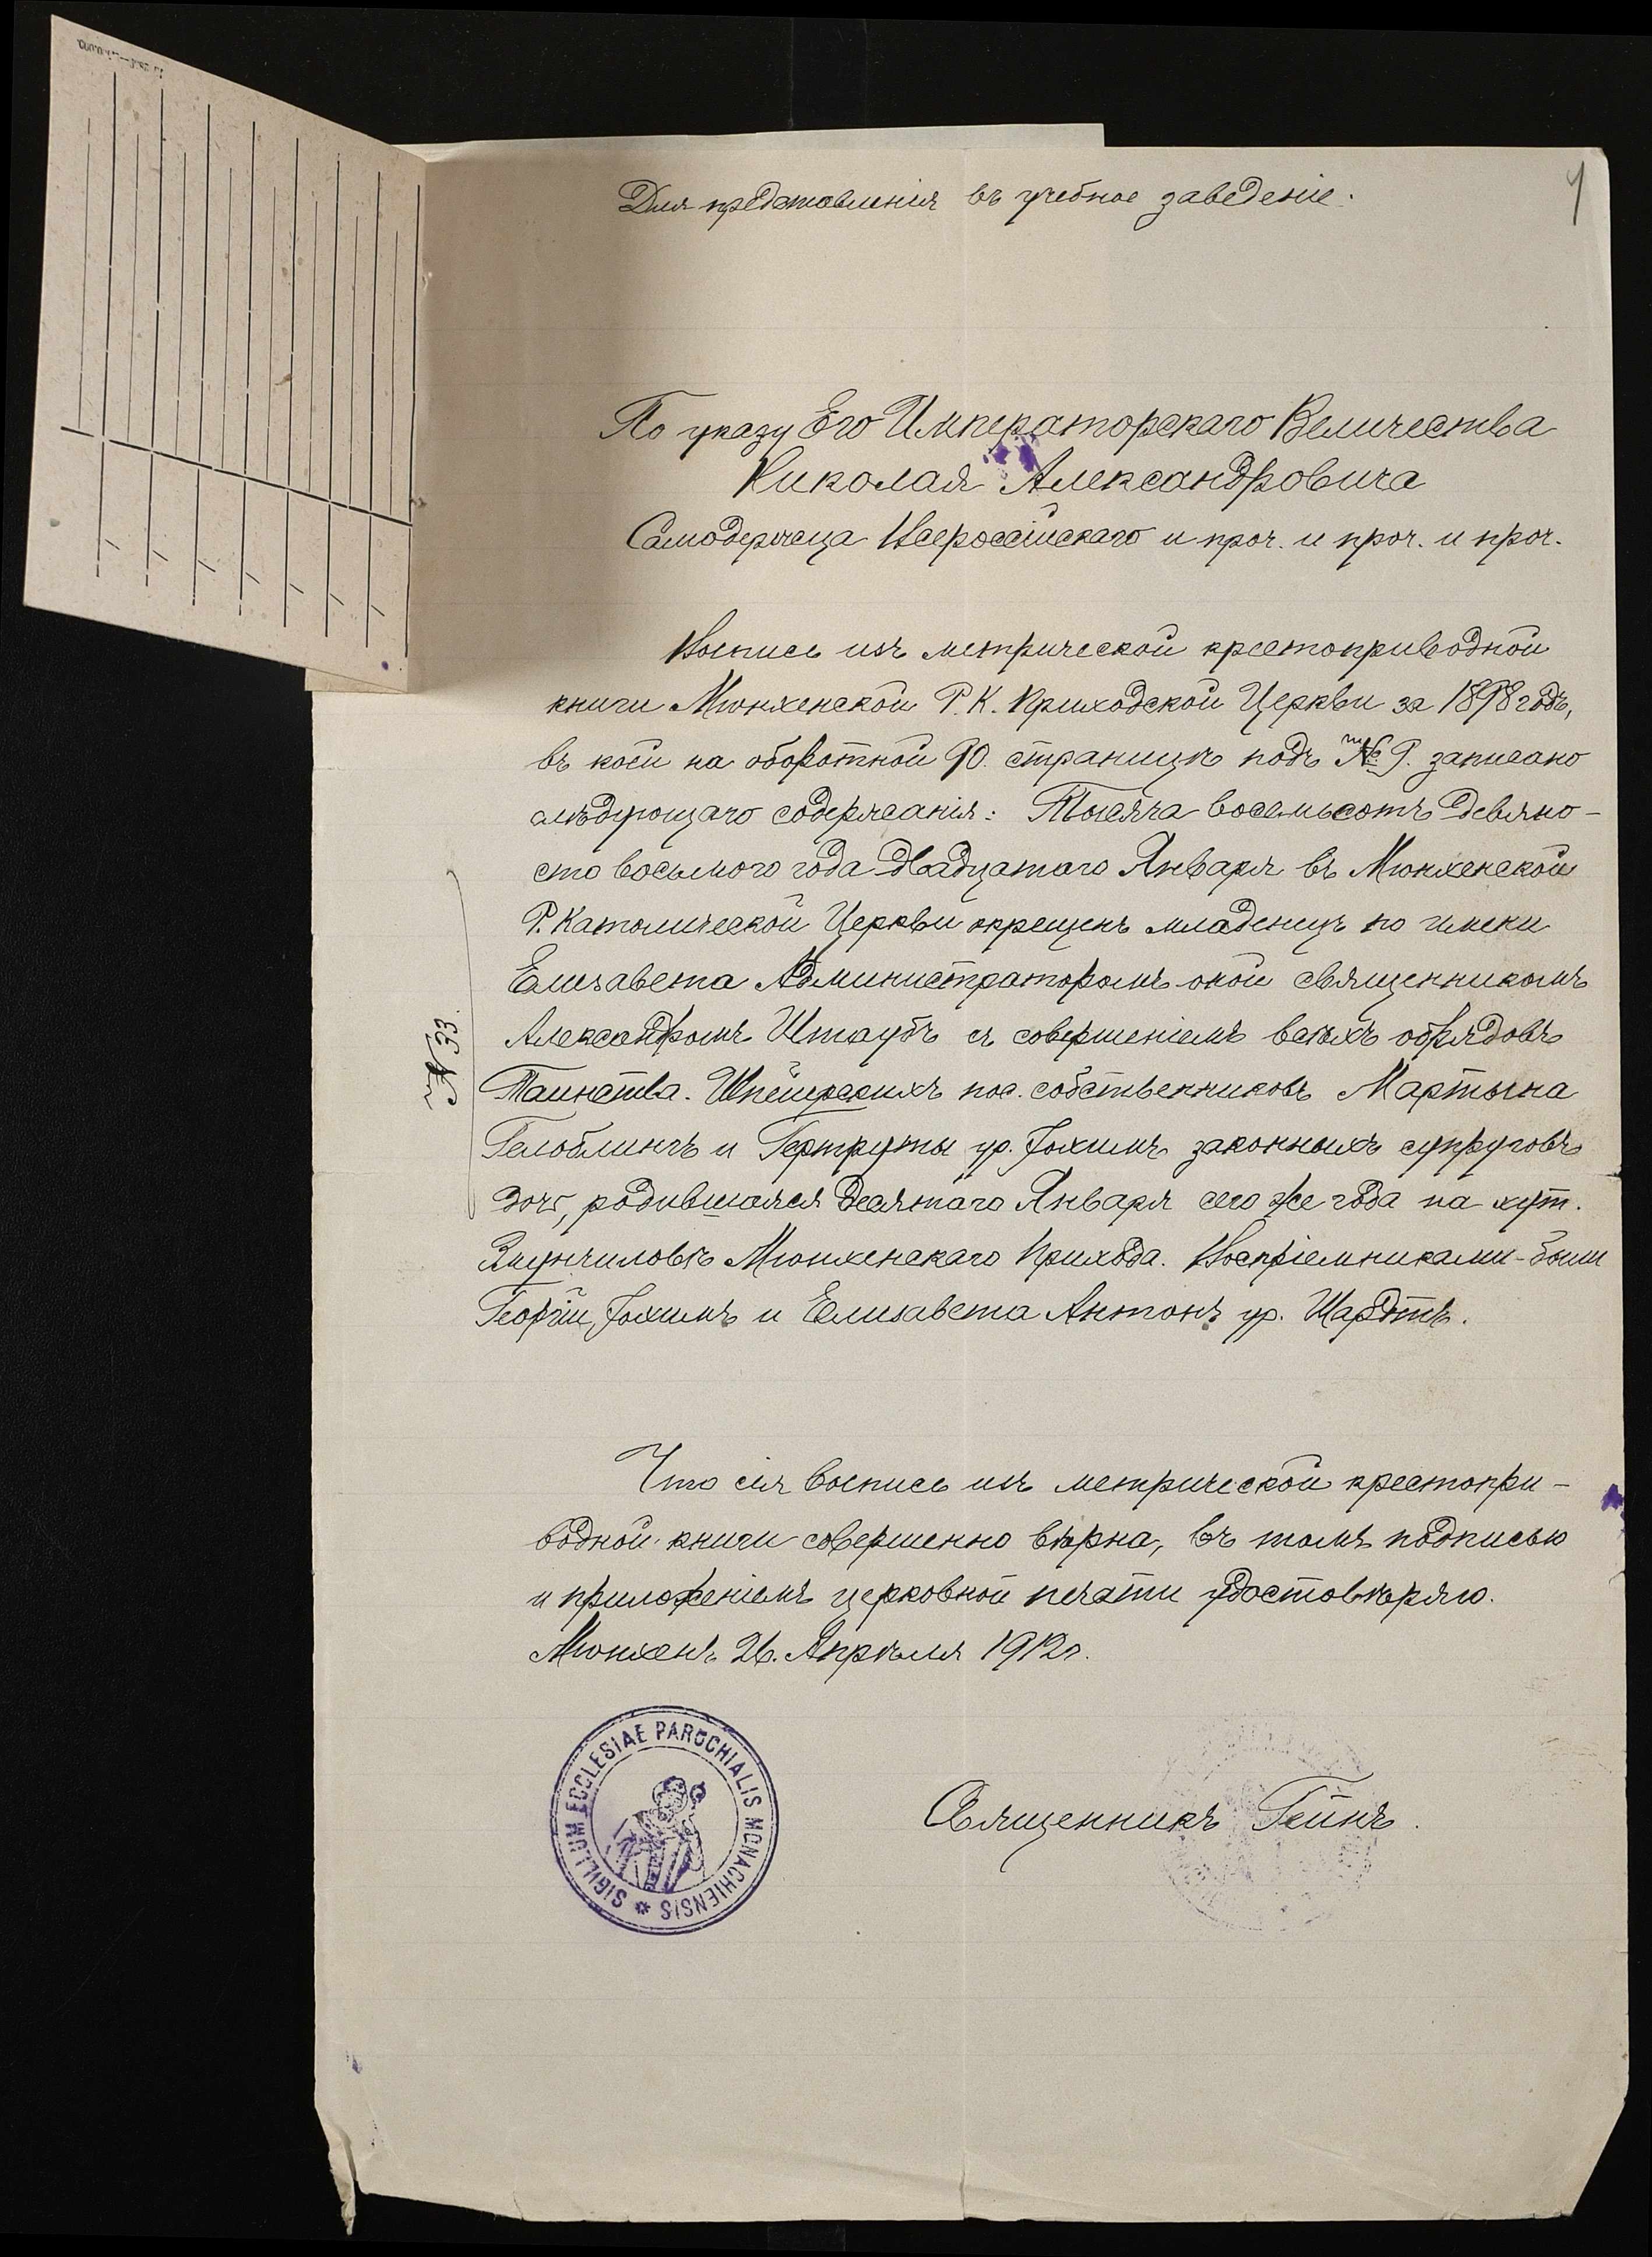 Для предстовленія въ учебное заведеніе.
По указу Его Императорскаго Величества
Николая Александровича
Самодержца Всероссійскаго и проч. и проч. и проч.
Выпись изъ метрической крестоприводной
книги Мюнхенской Р. К. Приходской Церкви за 1898 годъ,
въ коей на оборотной 90. страницѣ подъ № 9. записано
слѣдующаго содержанія: Тысяча восемьсотъ девяно-
сто восьмого года двадцатаго Января въ Мюнхенской
Р. Католической Церкви окрещенъ младенецъ по имени
Елизавета Администраторомъ оной священникомъ
Александромъ Штаубъ съ совершеніемъ всѣхъ обрядовъ
Таинства. Шпейерскихъ пос. собственниковъ Мартына
и Гертруты ур. Іохимъ законныхъ супруговъ
дочь, родившаяся десятаго Января сего же года на хут.
Мюнхенскаго Прихода. Воспріемниками были
Георгій Іохимъ и Елизавета Антонъ ур. Шардтъ.
№ 33.
Что сія выпись изъ метрической крестопри-
водной книги совершенно вѣрна, въ томъ подписью
и приложеніемъ церковной печати удостовѣряю.
Мюнхенъ 26. Апрѣля 1912 г.
SIGILLUM ECCLESIAE PAROCHIALIS MONACHIENSIS
Священникъ Гейнъ.